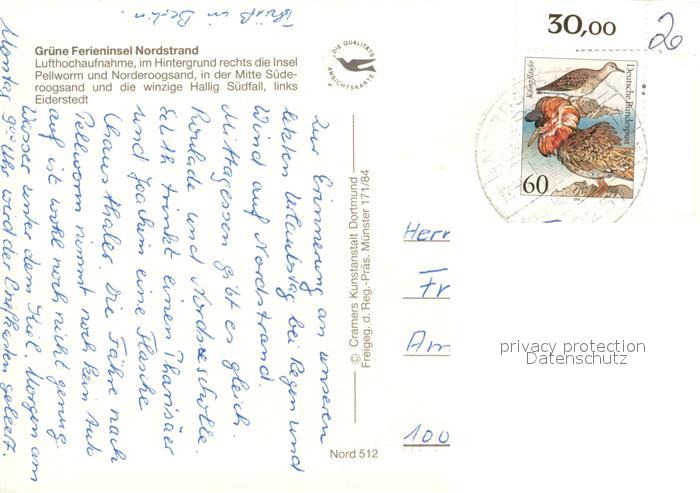 Grüß in Berlin.
Grüne Ferieninsel Nordstrand
Lufthochaufnahme, im Hintergrund rechts die Insel
Pellworm und Norderoogsand, in der Mitte Süde-
roogsand und die winzige Hallig Südfall, links
Eiderstedt
DIE QUALITÄTS
ANSICHTSKARTE
Zur Erinnerung an unseren
letzten Urlaubstag bei Regen und
Wind auf Nordstrand.
Mittagessen gibt es gleich.
Roulade und Nordseescholle.
trinkt einen Pharisäer
und Joachim eine Flasche
Die Fähre nach
Pellworm nimmt noch kein Auto
auf ist wohl noch nicht genug
Wasser unter dem Kiel. Morgen am
Montag 9 Uhr wird der Briefkasten geleert.
© Cramers Kunstanstalt Dortmund
Freigeg. d. Reg.-Präs. Münster 171/84
Nord 512
30,00
2
Kampfläufer
Deutsche Bundespost
60
Herr
Fr
Am
100
privacy protection
Datenschutz